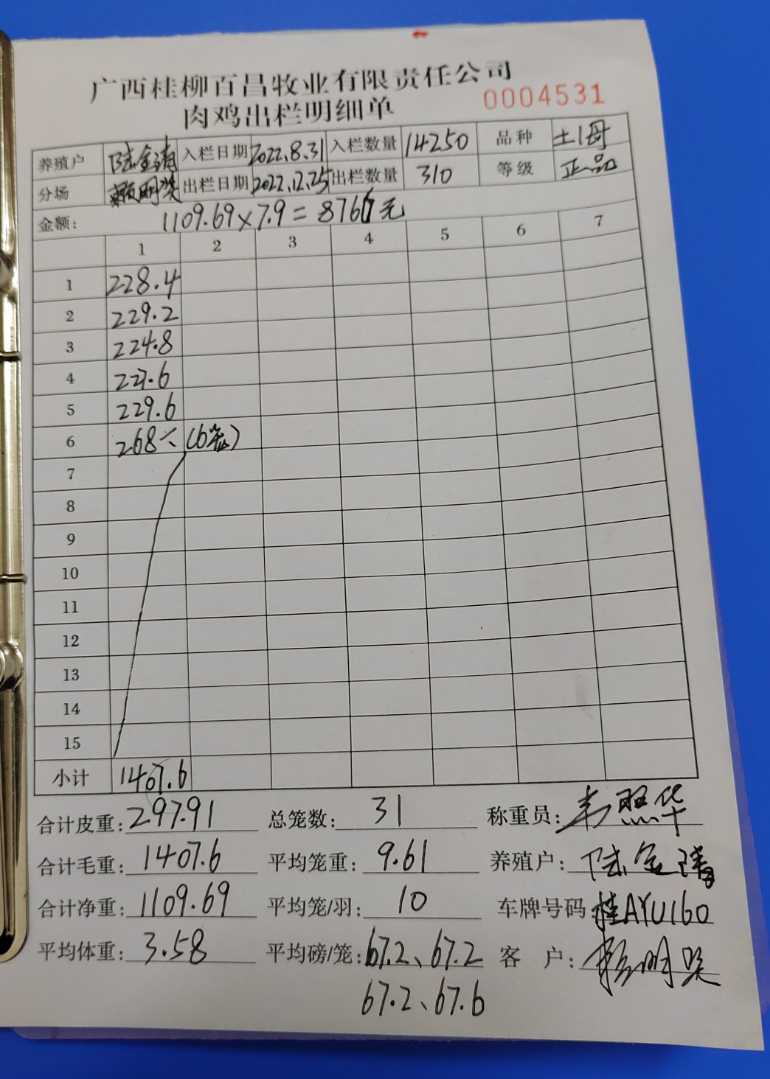 广西桂柳百昌牧业有限责任公司
肉鸡出栏明细单 0004531
养殖户 入栏日期 2022.8.31 入栏数量 14250 品种 土1母
分场 出栏日期 2022.12.25 出栏数量 310 等级 正品
金额: 1109.69×7.9=8766元
1 2 3 4 5 6 7
1 228.4
2 229.2
3 224.8
4 227.6
5 229.6
6 268 (6笼)
7
8
9
10
11
12
13
14
15
小计 1407.6
合计皮重: 297.91 总笼数: 31 称重员: 韦照华
合计毛重: 1407.6 平均笼重: 9.61 养殖户: 陆金
合计净重: 1109.69 平均笼/羽: 10 车牌号码 桂AYU160
平均体重: 3.58 平均磅/笼: 67.2、67.2 客 户:
67.2、67.6